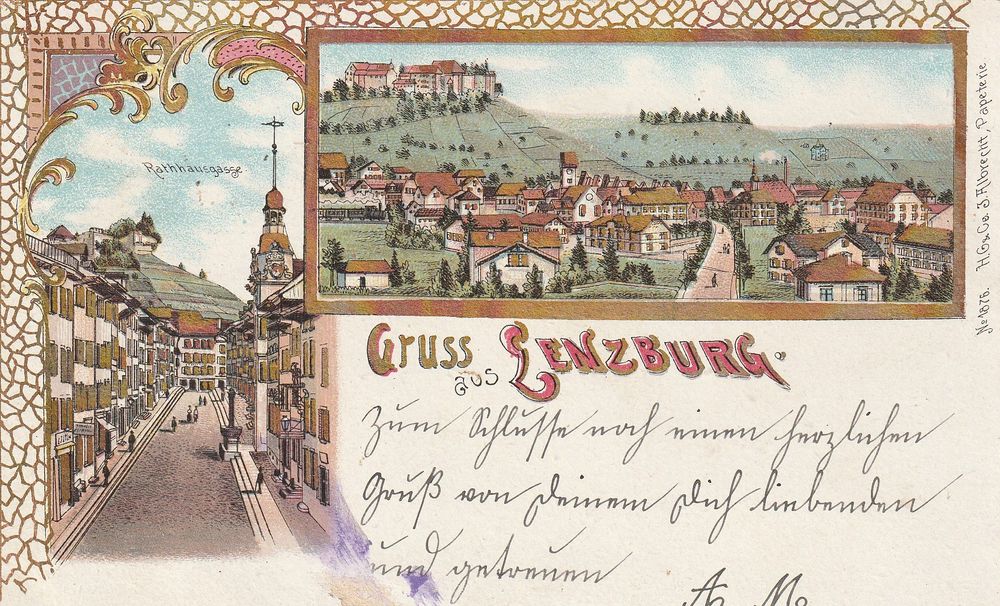 Rathhausgasse
Gruss
aus
Lenzburg.
Zum Schlusse noch einen herzlichen
Gruß von Deinem Dich liebenden
und getreuen
A. M.
No 1876. H. G. & Co. J. Albrecht, Papeterie